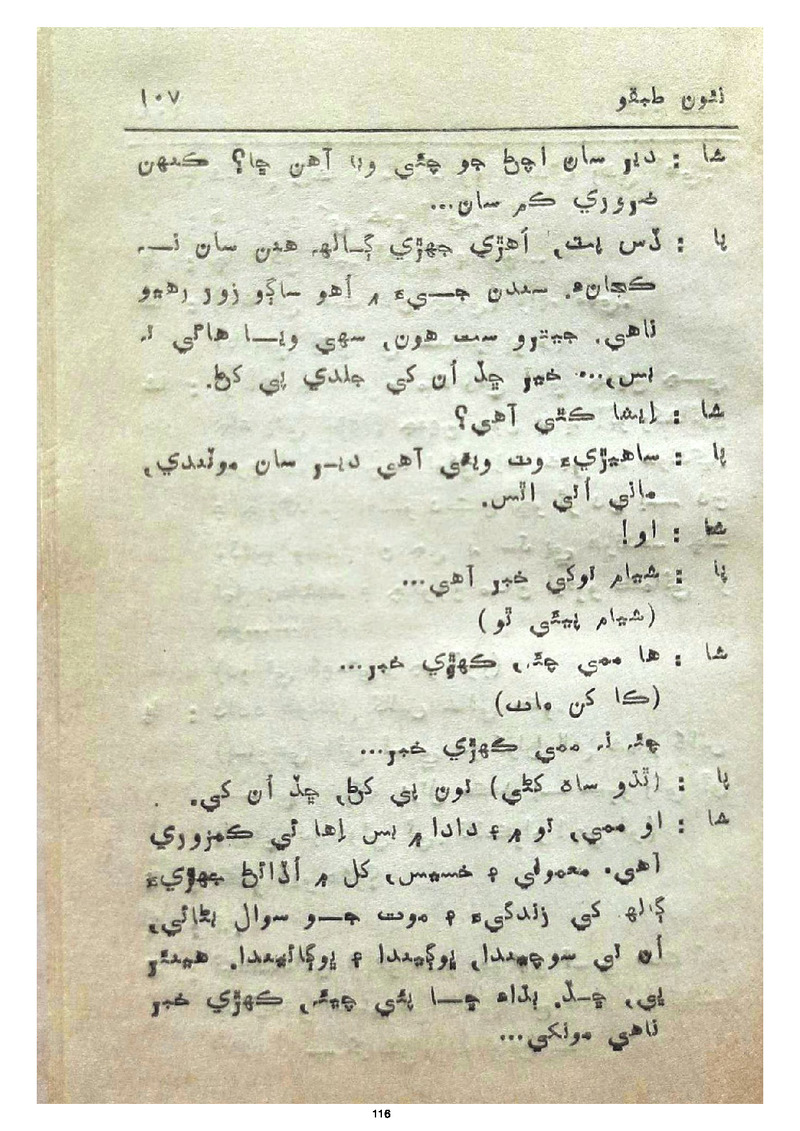 نئون طبقو ١٠٧
شا : دير سان اچڻ جو چئي ويا آهن ڇا؟ ڪنهن
ضروري ڪم سان...
پا : ڏس پٽ, اهڙي جهڙي ڳالهہ هنن سان نہ
ڪجانءِ. سندن جيءَ ۾ اهو ساڳو زور رهيو
ناهي. جيترو سٺ هون, سهي ويا هاڻي نہ
بس,... خير ڇڏ اُن کي جلدي پي کڻ.
شا : ايشا ڪٿي آهي؟
پا : ساهيڙيءَ وٽ ويئي آهي دير سان موٽندي,
ماني اُتي اٿس.
شا : او!
پا : شيام توکي خبر آهي...
(شيام پيئي ٿو)
شا : ها ممي چئہ, ڪهڙي خبر...
(ڪا کن ماٺ)
چئہ نہ ممي ڪهڙي خبر...
پا : (ٿڌو ساه کڻي) تون پي کڻ, ڇڏ اُن کي.
شا : او ممي, تو ۾ ۽ دادا ۾ بس اِها ئي ڪمزوري
آهي. معمولي ۽ خسيس, کل ۾ اُڏائڻ جهڙيءَ
ڳالهہ کي زندگيءَ ۽ موت جو سوال بڻائي,
اُن تي سوچيندا, ڀوڳيندا ۽ ڀوڳائيندا. هيئر
پي, ڇڏ. ٻڌاءِ ڇا پئي چيئہ, ڪهڙي خبر
ناهي مونکي...
116